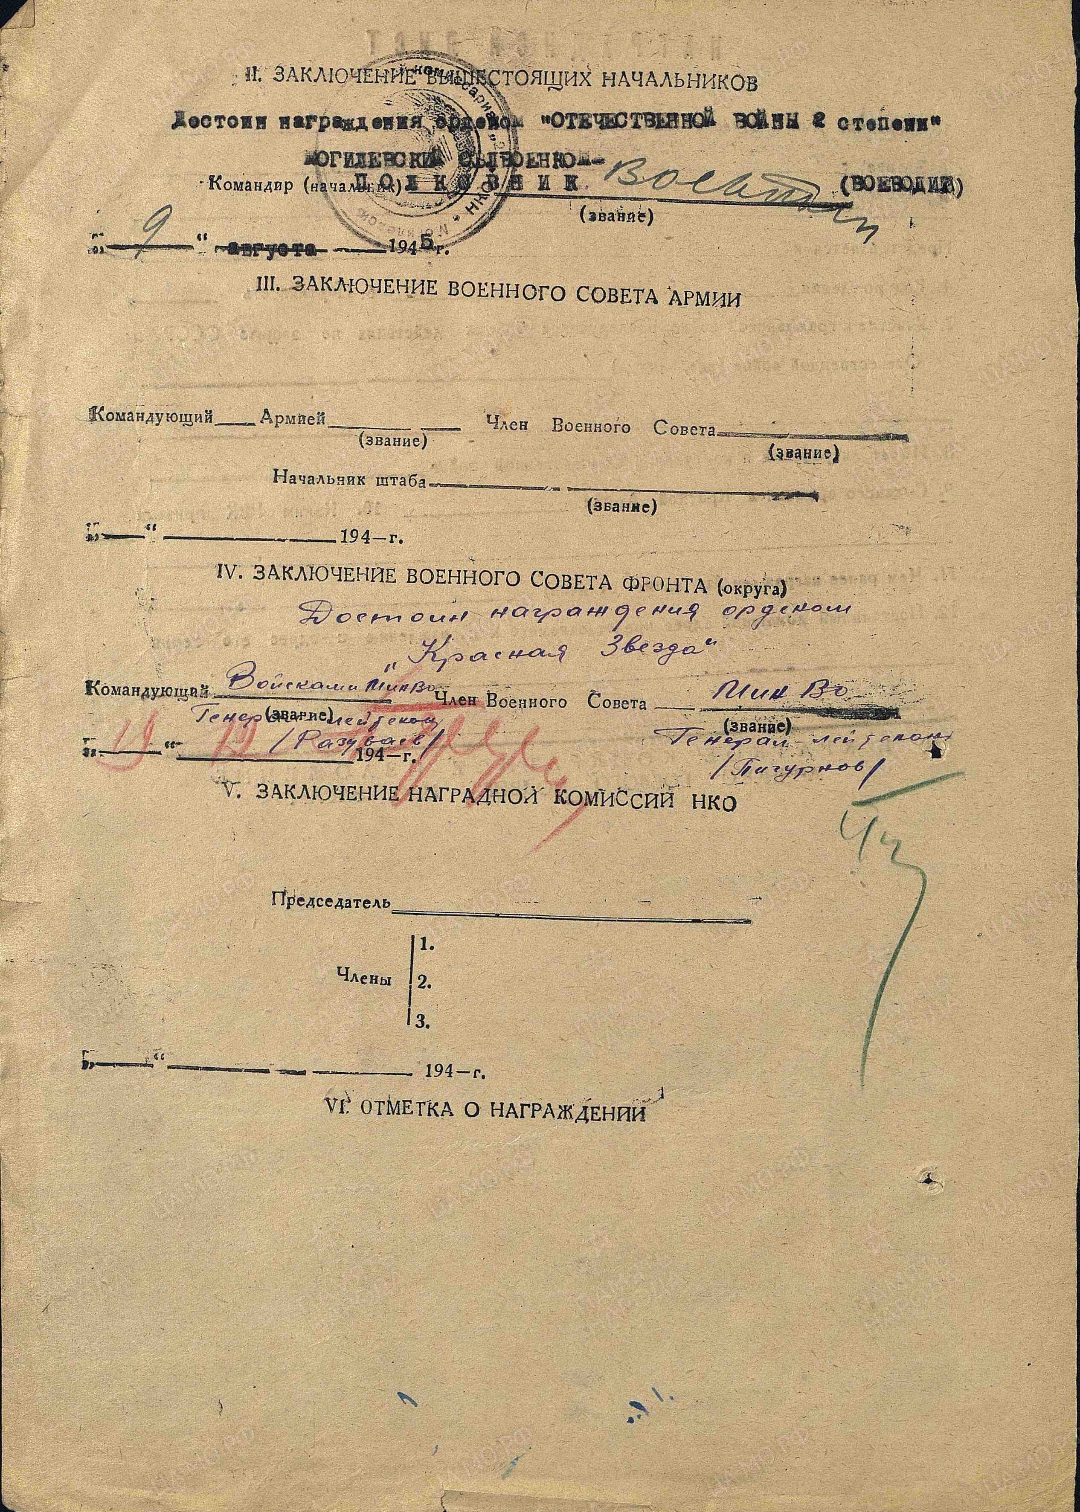 II. ЗАКЛЮЧЕНИЕ ВЫШЕСТОЯЩИХ НАЧАЛЬНИКОВ
Достоин награждения орденом "ОТЕЧЕСТВЕННОЙ ВОЙНЫ 2 степени"
МОГИЛЕВСКИЙ ОБЛВОЕНКОМ-
Командир (начальник) ПОЛКОВНИК (ВОЕВОДИН)
(звание)
„ 9 “ августа 1945 г.
III. ЗАКЛЮЧЕНИЕ ВОЕННОГО СОВЕТА АРМИИ
Командующий Армией Член Военного Совета
(звание) (звание)
Начальник штаба
(звание)
„ “ 194—г.
IV. ЗАКЛЮЧЕНИЕ ВОЕННОГО СОВЕТА ФРОНТА (округа)
Достоин награждения орденом
„Красная Звезда“
Командующий Войсками МинВо Член Военного Совета МинВо
(звание) (звание)
Генерал лейтенант Генерал лейтенант
„ 19 “ 12 194—г. /Разуваев/ /Пигурнов/
V. ЗАКЛЮЧЕНИЕ НАГРАДНОЙ КОМИССИИ НКО
Председатель
Члены
1.
2.
3.
„ “ 194—г.
VI. ОТМЕТКА О НАГРАЖДЕНИИ